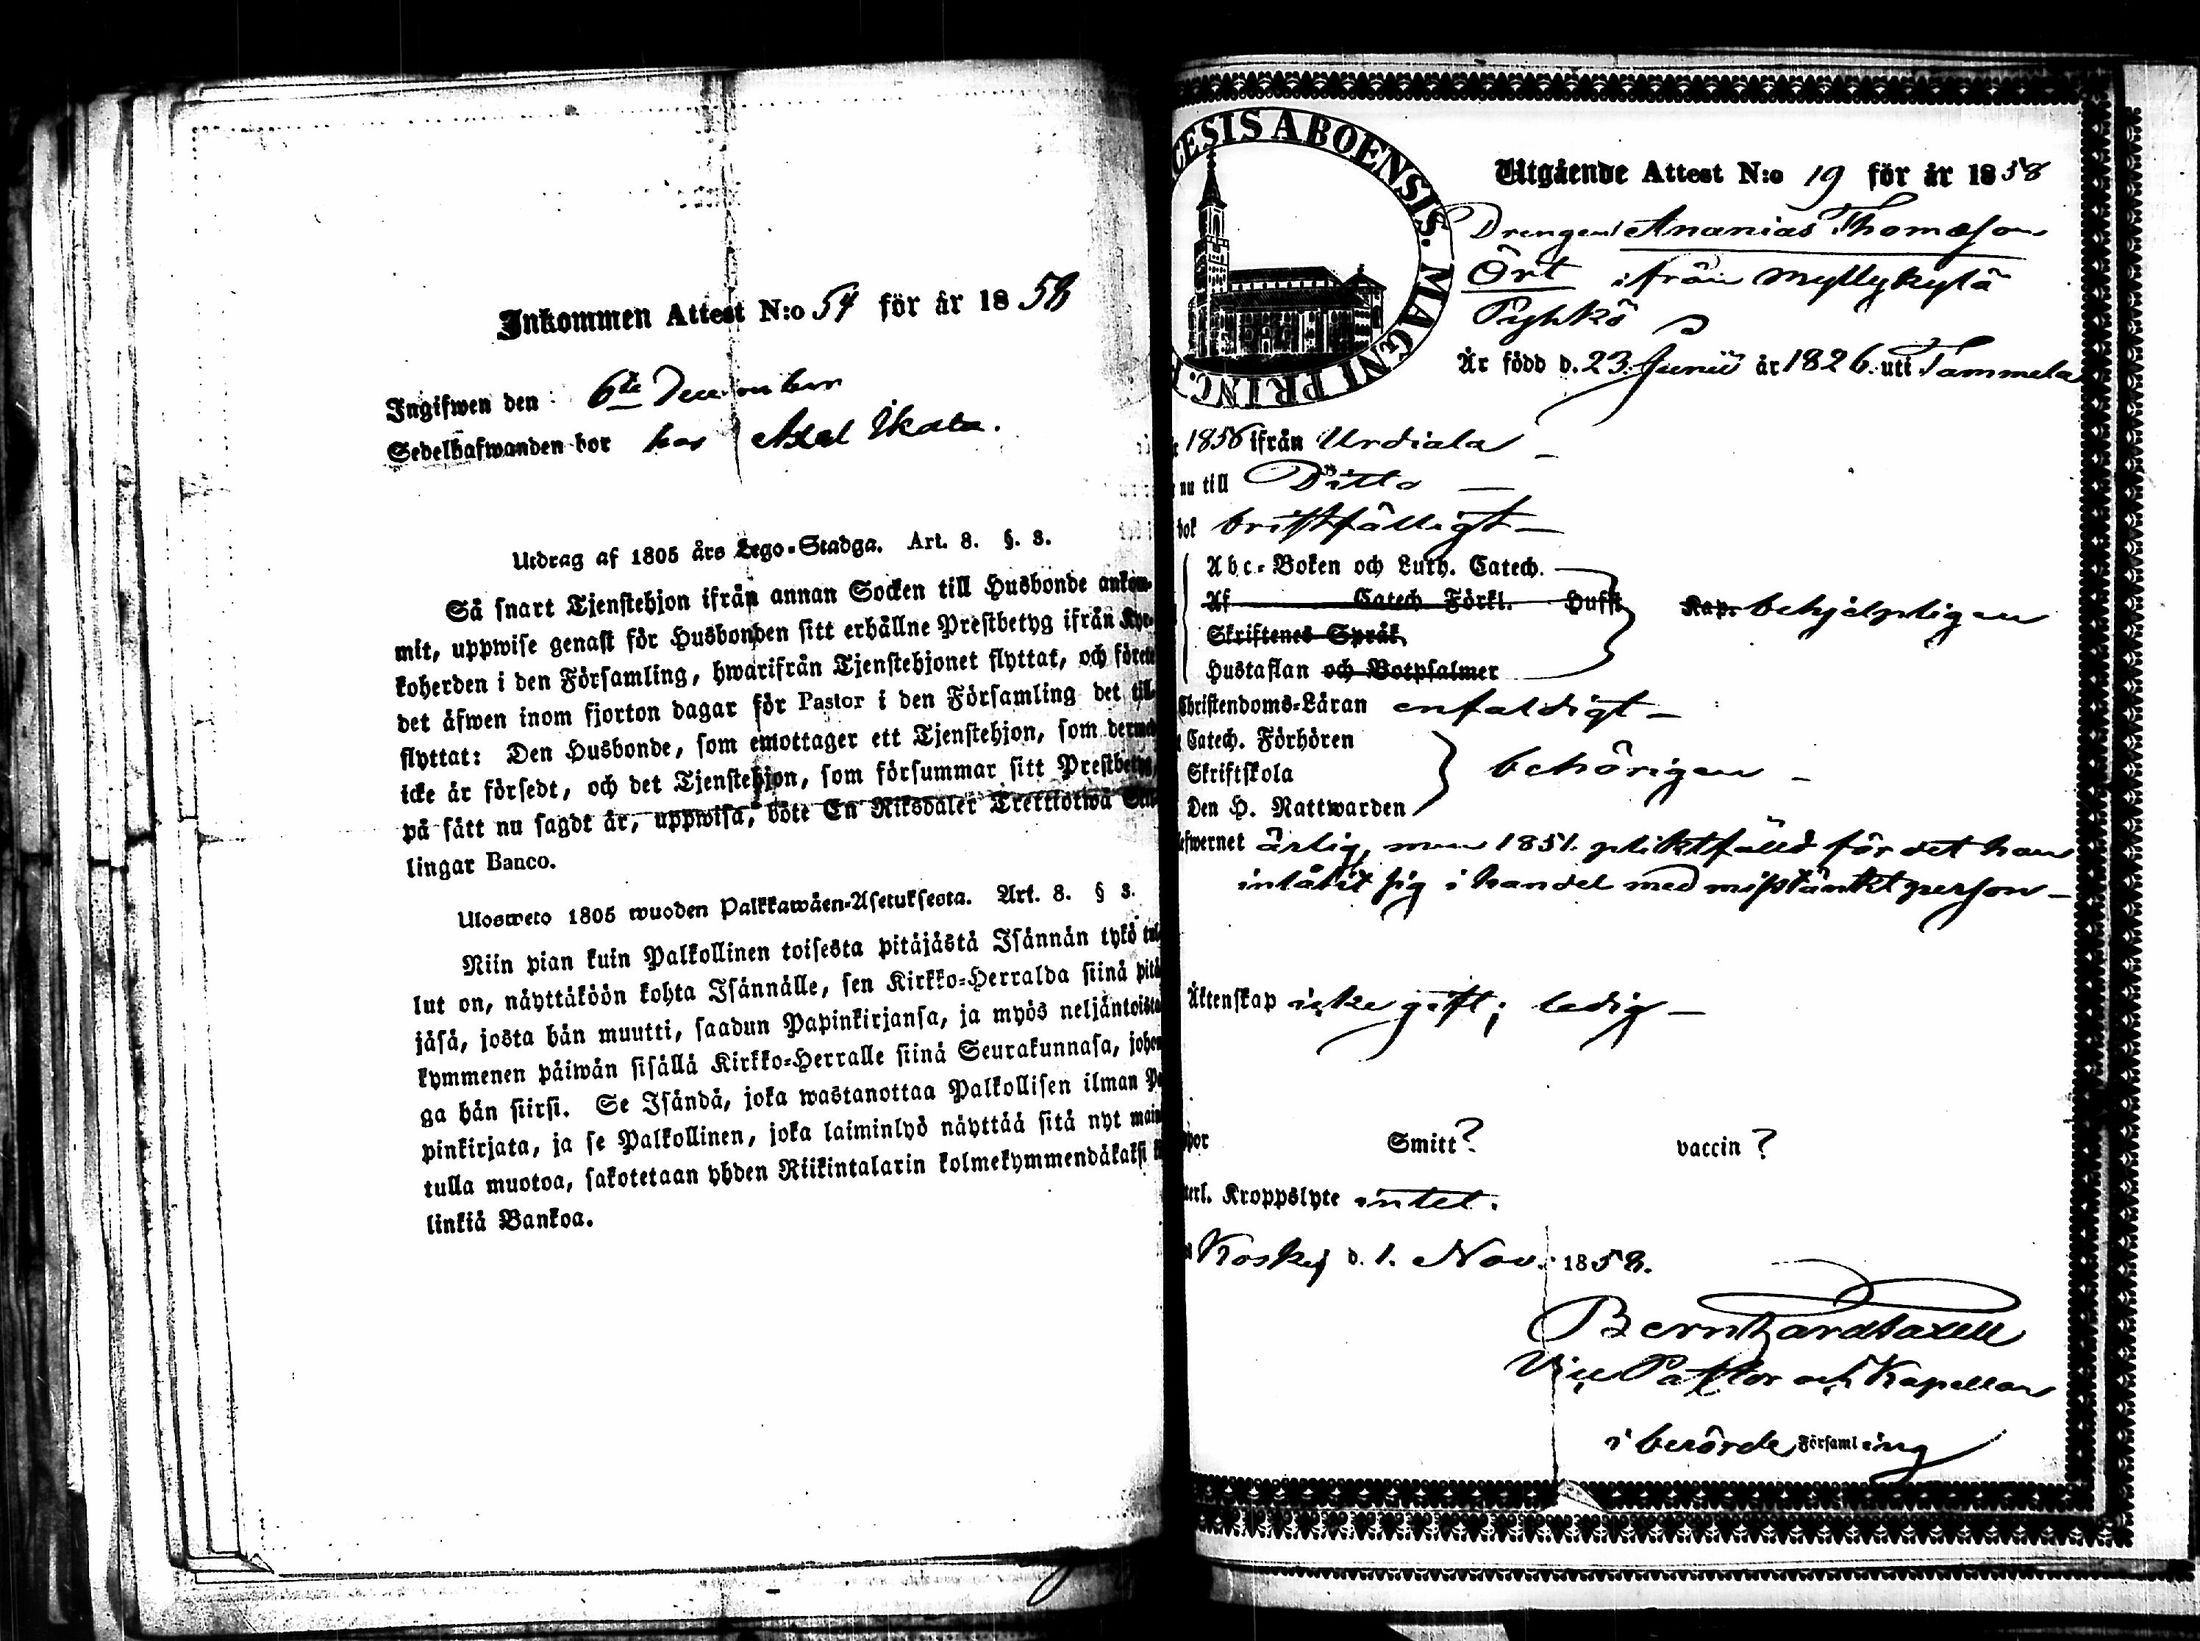 Inkommen Attest N:o 54 för år 1858
Ingifwen den 6te December
Sedelhafwanden bor hos Axel Ikala.
Utdrag af 1805 års Lego-Stadga. Art. 8. §. 3.
Så snart Tjenstehjon ifrån annan Socken till Husbonde ankom-
mit, uppwise genast för Husbonden sitt erhållne Prestbetyg ifrån Kyr-
koherden i den Församling, hwarifrån Tjenstehjonet flyttat, och förete
det äfwen inom fjorton dagar för Pastor i den Församling det till-
flyttat: Den Husbonde, som emottager ett Tjenstehjon, som dermed
icke är försedt, och det Tjenstehjon, som försummar sitt Prestbetyg,
på sätt nu sagdt är, uppwisa, böte En Riksdaler Trettiotwå
lingar Banco.
Ulosweto 1805 wuoden Palkkawäen-Asetuksesta. Art. 8. § 3.
Niin pian kuin Palkollinen toisesta pitäjästä Isännän tykö tul-
lut on, näyttäköön kohta Isännälle, sen Kirkko-Herralda siinä pitä-
jäsä, josta hän muutti, saadun Papinkirjansa, ja myös neljäntoista
kymmenen päiwän sisällä Kirkko-Herralle siinä Seurakunnasa, johon-
ga hän siirsi. Se Isändä, joka wastanottaa Palkollisen ilman Pa-
pinkirjata, ja se Palkollinen, joka laiminlyö näyttää sitä nyt mai-
tulla muotoa, sakotetaan yhden Riikintalarin kolmekymmendäkaksi
linkiä Bankoa.
CESIS ABOENSIS. MAGNI PRINC.
Utgående Attest N:o 19 för år 1858
Drengen Ananias Thomasson
Ört ifrån Myllykylä
Pyhkö
Är född d. 23 Junii år 1826 uti Tammela
1856 ifrån Urdiala
nu till Ditto
bok bristfälligt
Abc-Boken och Luth. Catech.
Af Catech. Förkl. Hufst. Kap. behjelpligen
Skriftenes Språk
Hustaflan och Botpsalmer
Christendoms-Läran enfaldigt
Catech. Förhören
Skriftskola behörigen
Den H. Nattwarden
efwernet ärlig, men 1851 pliktfälld för det han
inlåtit sig i handel med misstänkt person
Äktenskap icke gift; ledig
por Smitt? vaccin?
terl. Kroppslyte intet.
Koskis d. 1. Nov. 1858.
Bernhard Taxell
Vice Pastor och Kapellan
i berörde Församling